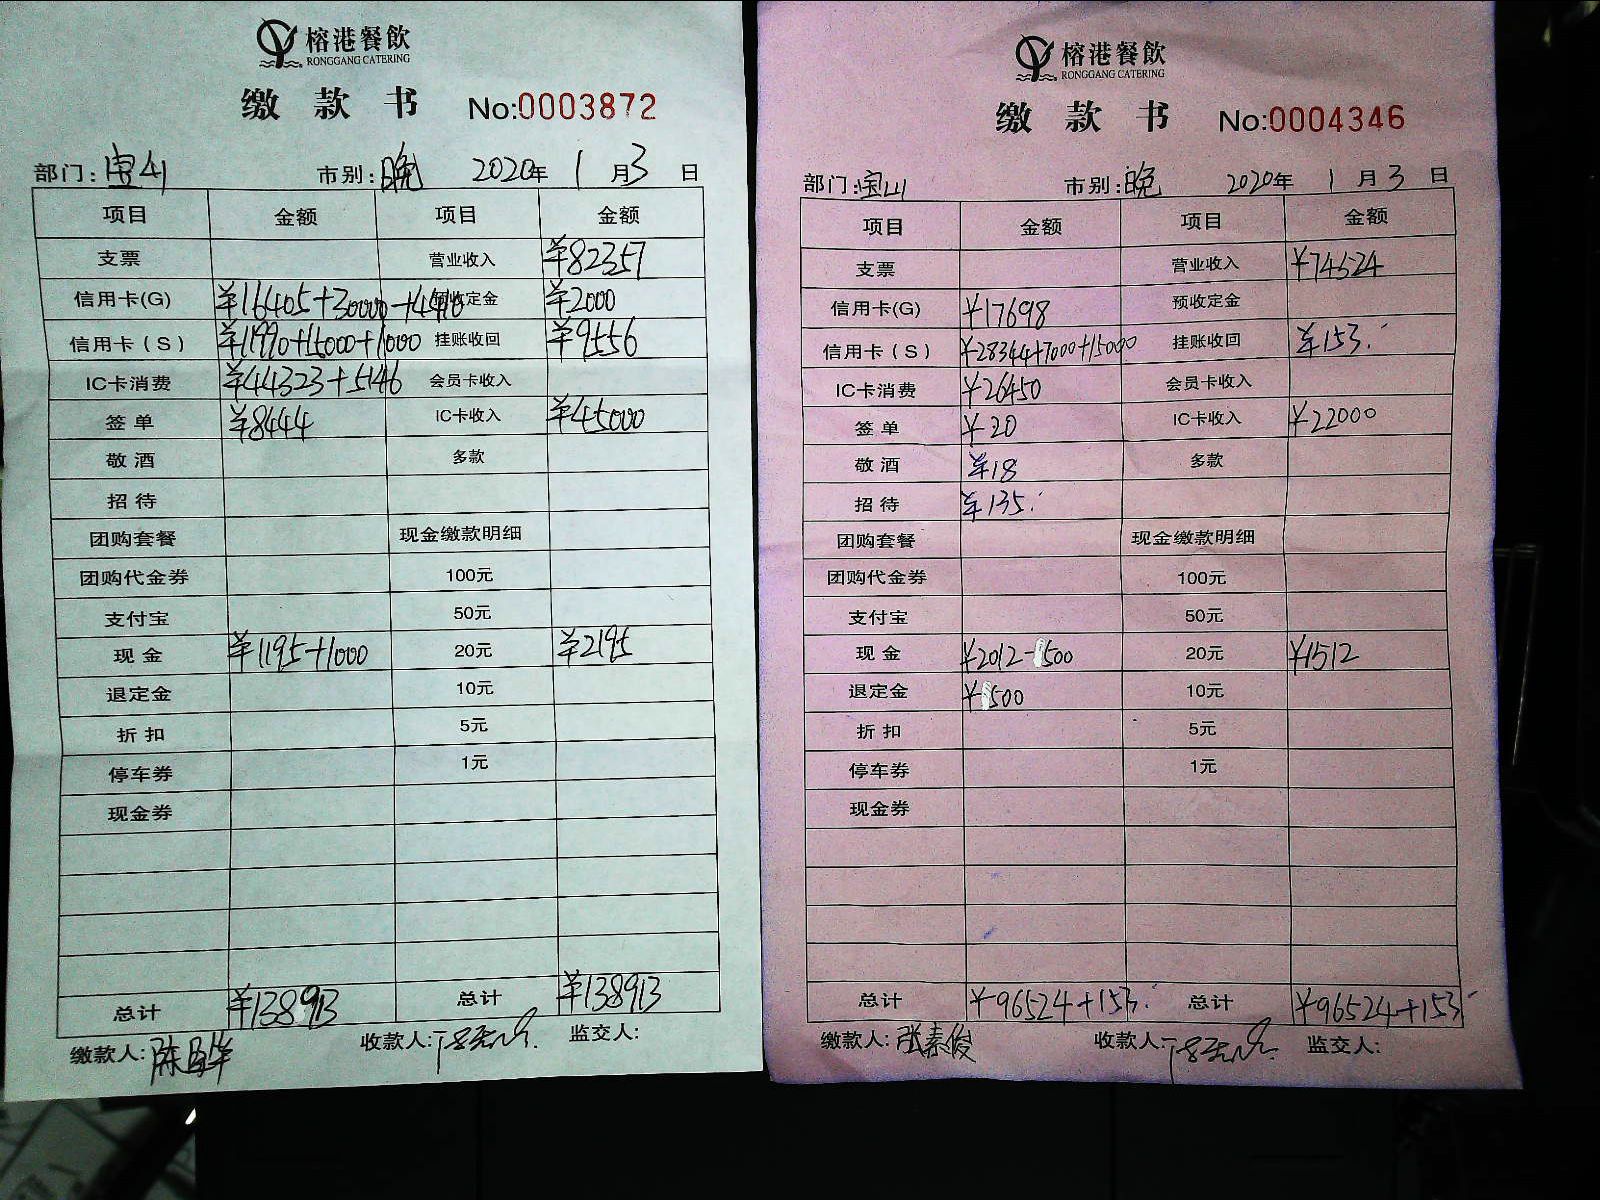 榕港餐飲
RONGGANG CATERING
缴款书 No:0003872
部门:宝山 市别:晚 2020年1月3日
项目 金额 项目 金额
支票 营业收入 ¥82357
信用卡(G) ¥16405+30000+4410 预收定金 ¥2000
信用卡(S) ¥11990+15000+1000 挂账收回 ¥9556
IC卡消费 ¥44323+5146 会员卡收入
签单 ¥8444 IC卡收入 ¥45000
敬酒 多款
招待
团购套餐 现金缴款明细
团购代金券 100元
支付宝 50元
现金 ¥1195+1000 20元 ¥2195
退定金 10元
折扣 5元
停车券 1元
现金券
总计 ¥138913 总计 ¥138913
缴款人:陈 收款人: 监交人:
榕港餐飲
RONGGANG CATERING
缴款书 No:0004346
部门:宝山 市别:晚 2020年1月3日
项目 金额 项目 金额
支票 营业收入 ¥74524
信用卡(G) ¥17698 预收定金
信用卡(S) ¥28344+7000+15000 挂账收回 ¥153.
IC卡消费 ¥26450 会员卡收入
签单 ¥20 IC卡收入 ¥22000
敬酒 ¥18 多款
招待 ¥135.
团购套餐 现金缴款明细
团购代金券 100元
支付宝 50元
现金 ¥2012-500 20元 ¥1512
退定金 ¥500 10元
折扣 5元
停车券 1元
现金券
总计 ¥96524+153. 总计 ¥96524+153
缴款人:张素俊 收款人: 监交人: